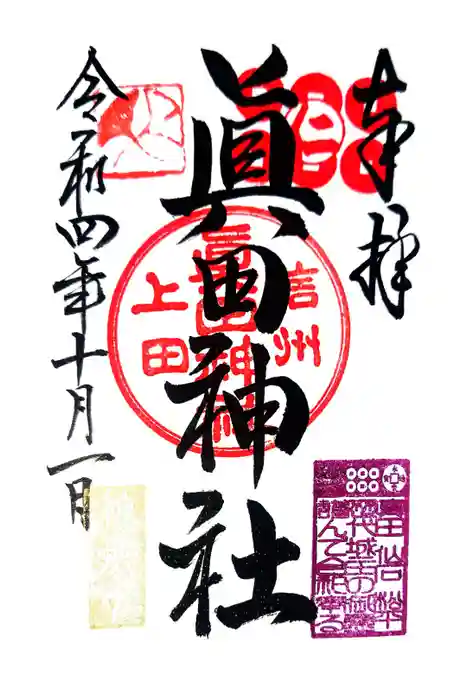 奉拝
眞田神社
信州
上田
眞田神社
令和四年十月一日